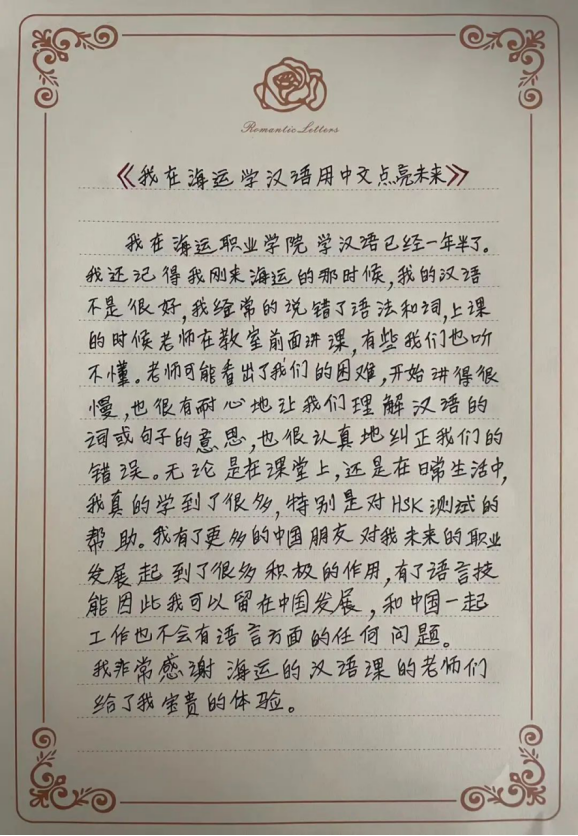 Romantic Letters
《我在海运学汉语用中文点亮未来》
我在海运职业学院学汉语已经一年半了。
我还记得我刚来海运的那时候，我的汉语
不是很好，我经常的说错了语法和词，上课
的时候老师在教室前面讲课，有些我们也听
不懂。老师可能看出了我们的困难，开始讲得很
慢，也很有耐心地让我们理解汉语的
词或句子的意思，也很认真地纠正我们的
错误。无论是在课堂上，还是在日常生活中，
我真的学到了很多，特别是对HSK测试的
帮助。我有了更多的中国朋友对我未来的职业
发展起到了很多积极的作用，有了语言技
能因此我可以留在中国发展，和中国一起
工作也不会有语言方面的任何问题。
我非常感谢海运的汉语课的老师们
给了我宝贵的体验。